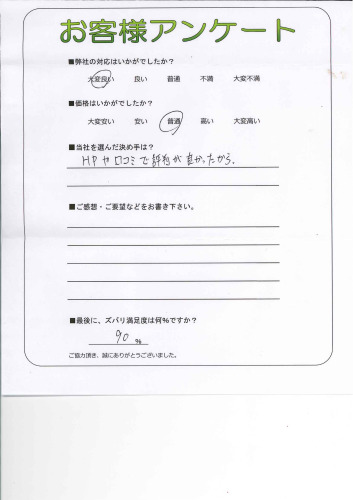 お客様アンケート
■弊社の対応はいかがでしたか?
大変良い 良い 普通 不満 大変不満
■価格はいかがでしたか?
大変安い 安い 普通 高い 大変高い
■当社を選んだ決め手は?
HPや口コミで評判が良かったから。
■ご感想・ご要望などをお書き下さい。
■最後に、ズバリ満足度は何%ですか?
90 %
ご協力頂き、誠にありがとうございました。